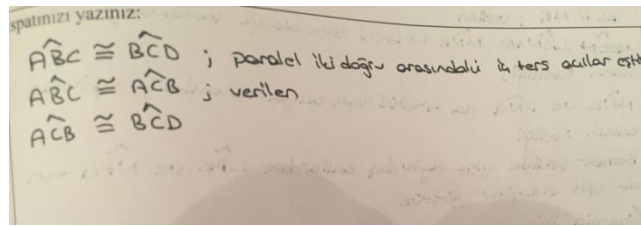 spatınızı yazınız:
ABC ≅ BCD ; paralel iki doğru arasındaki iç ters açılar eşti
ABC ≅ ACB ; verilen
ACB ≅ BCD